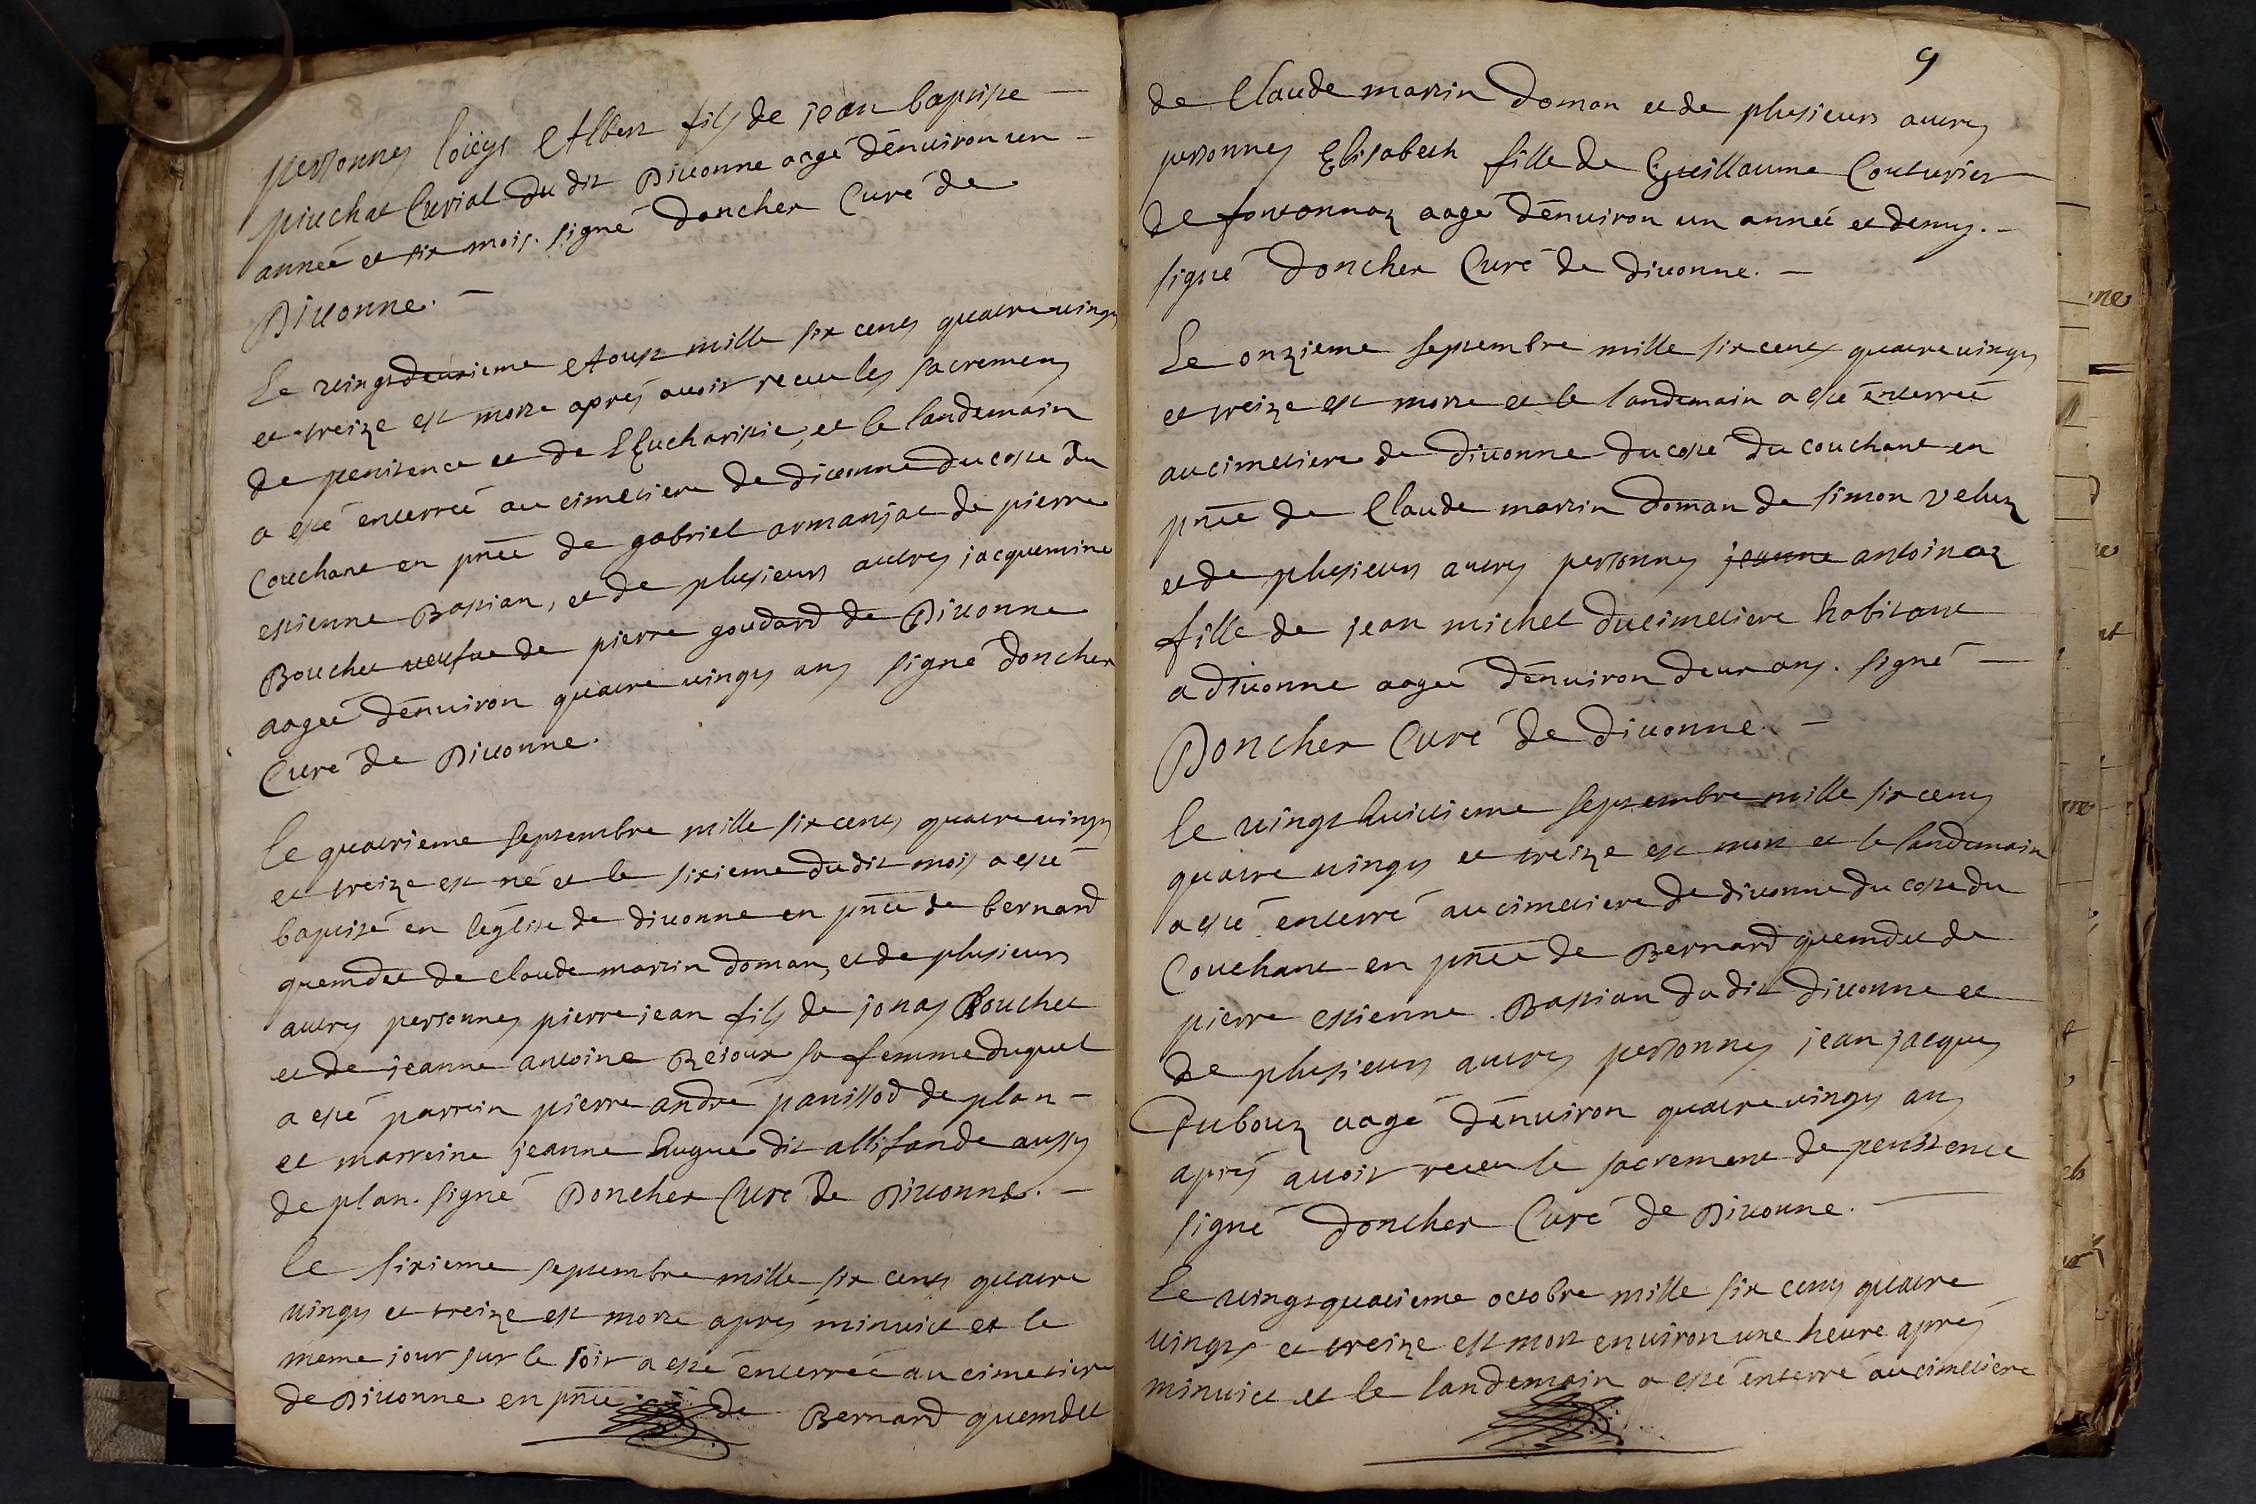 personnes loüys Albert fils de jean baptiste
piuchat Curial du dit Divonne aagé d'enuiron un
anneé et six mois. signé doncher Curé de
Divonne.
Le vingtdeuxieme Aoust mille six cents quatre vingts
et treize est morte aprés auoir receu les sacrements
de penitence et de l'Eucharistie, et le landemain
a esté enterreé au cimetiere de divonne du costé du
Couchant en pnce de gabriel armanjat de pierre
estienne Bastian, et de plusieurs autres jacquemine
Bouchet veufue de pierre goudard de Divonne
aageé d'enuiron quatre vingts ans signé doncher
Curé de Divonne.
le quatrieme septembre mille six cents quatre vingts
et treize est né et le sixieme dudit mois a esté
baptisé en l'église de divonne en pnce de bernard
quemdet de claude martin doman, et de plusieurs
autres personnes pierre jean fils de jonas Bouchet
et de jeanne antoine Rejoux sa femme duquel
a esté parrein pierre andre panissod de plan
et marreine jeanne hugue dit allifonde aussy
de plan. signé Doncher Curé de Divonne.
le sixieme septembre mille six cents quatre
vingts et treize est morte aprés minuict et le
meme jour sur le soir a esté enterreé au cimetiere
de Divonne en pnce de Bernard quemdet
9
de Claude martin doman et de plusieurs autres
personnes Elisabeth fille de Guillaume Couturier
de fontannaz aagé d'enuiron un anneé et demy.
signé Doncher Curé de divonne.
Le onzieme septembre mille six cents quatre vingts
et treize est morte et le landemain a esté enterreé
au cimetiere de divonne du costé du couchant en
pnce de Claude martin doman de simon veluz
et de plusieurs autres personnes jeanne antoinaz
fille de jean michel ducimetiere habitant
a divonne aageé d'enuiron deux ans. signé
Doncher Curé de divonne.
le vingt huictieme septembre mille six cents
quatre vingts et treize est mort et le landemain
a esté enterré au cimetiere de divonne du costé du
Couchant en pnce de Bernard quemdet de
pierre estienne Bastian du dit divonne et
de plusieurs autres personnes jean jacques
Dubouz aagé d'enuiron quatre vingts ans
aprés auoir receu le sacrement de penitence
signé doncher Curé de Divonne.
Le vingtquatrieme octobre mille six cents quatre
vingts et treize est mort enuiron une heure aprés
minuict et le landemain a esté enterré au cimetiere